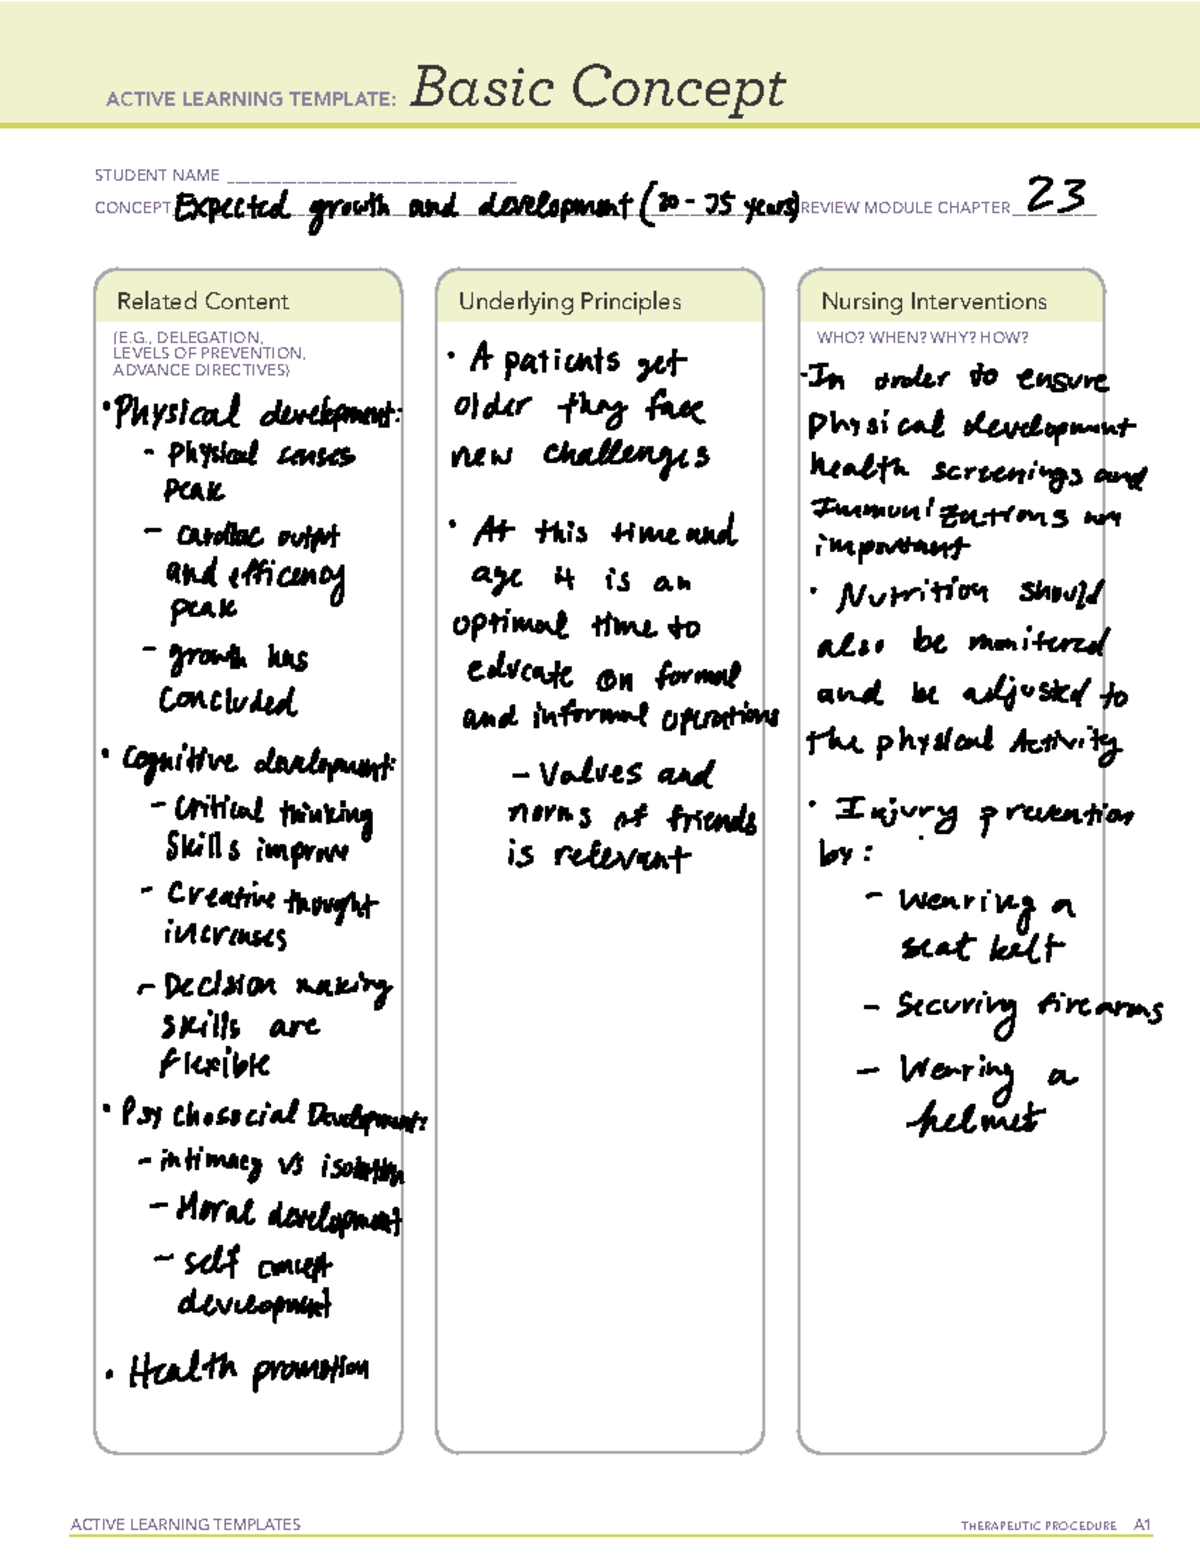 ACTIVE LEARNING TEMPLATE: Basic Concept
STUDENT NAME
CONCEPT Expected growth and development (20 - 35 years) REVIEW MODULE CHAPTER 23
Related Content
(E.G., DELEGATION,
LEVELS OF PREVENTION,
ADVANCE DIRECTIVES)
• Physical development:
- Physical senses
peak
- cardiac output
and efficency
peak
- growth has
concluded
• Cognitive development:
- Critical thinking
skills improve
- Creative thought
increases
- Decision making
skills are
flexible
• Psychosocial Development:
- intimacy vs isolation
- Moral development
- self concept
development
• Health promotion
Underlying Principles
• A patients get
older they face
new challenges
• At this time and
age it is an
optimal time to
educate on formal
and informal operations
- Values and
norms of friends
is relevant
Nursing Interventions
WHO? WHEN? WHY? HOW?
- In order to ensure
physical development
health screenings and
Immunizations are
important
• Nutrition should
also be monitered
and be adjusted to
the physical Activity
• Injury prevention
by:
- Wearing a
seat belt
- Securing firearms
- Wearing a
helmet
ACTIVE LEARNING TEMPLATES
THERAPEUTIC PROCEDURE A1